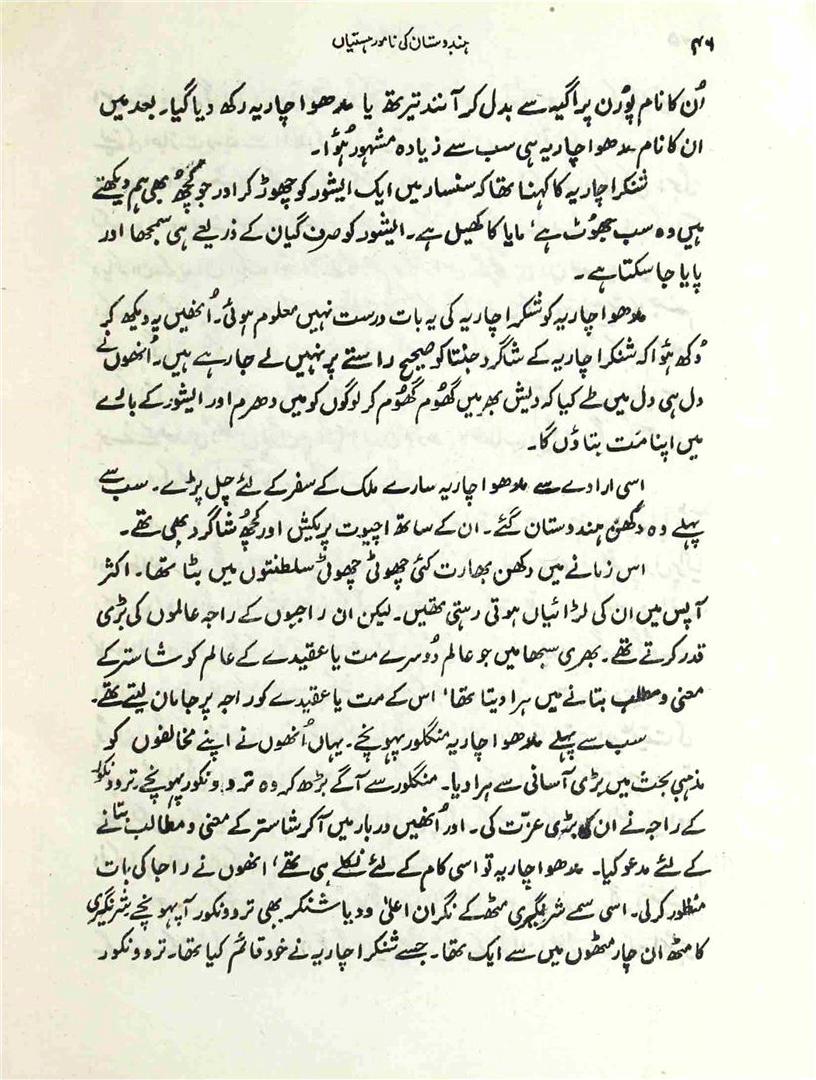 ۴۶
ہندوستان کی نامور ہستیاں
اُن کا نام پوُرن پراگیہ سے بدل کر آنند تیرتھ یا مدھوا چاریہ رکھ دیا گیا۔ بعد میں
ان کا نام مدھوا چاریہ ہی سب سے زیادہ مشہور ہُوا۔
شنکرا چاریہ کا کہنا تھا کہ سنسار میں ایک ایشور کو چھوڑ کر اور جو کچُھ بھی ہم دیکھتے
ہیں وہ سب جھوُٹ ہے، مایا کا کھیل ہے۔ ایشور کو صرف گیان کے ذریعے ہی سمجھا اور
پایا جا سکتا ہے۔
مدھوا چاریہ کو شنکرا چاریہ کی یہ بات درست نہیں معلوم ہوئی۔ اُنھیں یہ دیکھ کر
دُکھ ہُوا کہ شنکرا چاریہ کے شاگرد جنتا کو صحیح راستے پر نہیں لے جا رہے ہیں۔ اُنھوں نے
دل ہی دل میں طے کیا کہ دیش بھر میں گھوُم گھوُم کر لوگوں کو میں دھرم اور ایشور کے بارے
میں اپنا مَت بتاؤں گا۔
اسی ارادے سے مدھوا چاریہ سارے ملک کے سفر کے لئے چل پڑے۔ سب سے
پہلے وہ دکھن ہندوستان گئے۔ ان کے ساتھ اچیوت پریکش اور کچُھ شاگرد بھی تھے۔
اس زمانے میں دکھن بھارت کئی چھوٹی چھوٹی سلطنتوں میں بٹا تھا۔ اکثر
آپس میں ان کی لڑائیاں ہوتی رہتی تھیں۔ لیکن ان راجیوں کے راجہ عالموں کی بڑی
قدر کرتے تھے۔ بھری سبھا میں جو عالم دُوسرے مت یا عقیدے کے عالم کو شاستر کے
معنی و مطلب بتانے میں ہرا دیتا تھا، اس کے مت یا عقیدے کو راجہ پرجا مان لیتے تھے۔
سب سے پہلے مدھوا چاریہ منگلور پہونچے۔ یہاں اُنھوں نے اپنے مخالفوں کو
مذہبی بحث میں بڑی آسانی سے ہرا دیا۔ منگلور سے آگے بڑھ کر وہ تروونکور پہونچے۔ تروونکور
کے راجہ نے ان کی بڑی عزّت کی۔ اور اُنھیں دربار میں آکر شاستر کے معنی و مطالب بتانے
کے لئے مدعو کیا۔ مدھوا چاریہ تو اسی کام کے لئے نکلے ہی تھے، انھوں نے راجا کی بات
منظور کر لی۔ اسی سمے شرینگیری مٹھ کے نگران اعلیٰ ودیا شنکر بھی تروونکور آ پہونچے۔ شرینگیری
کا مٹھ ان چار مٹھوں میں سے ایک تھا۔ جسے شنکرا چاریہ نے خود قائم کیا تھا۔ تروونکور